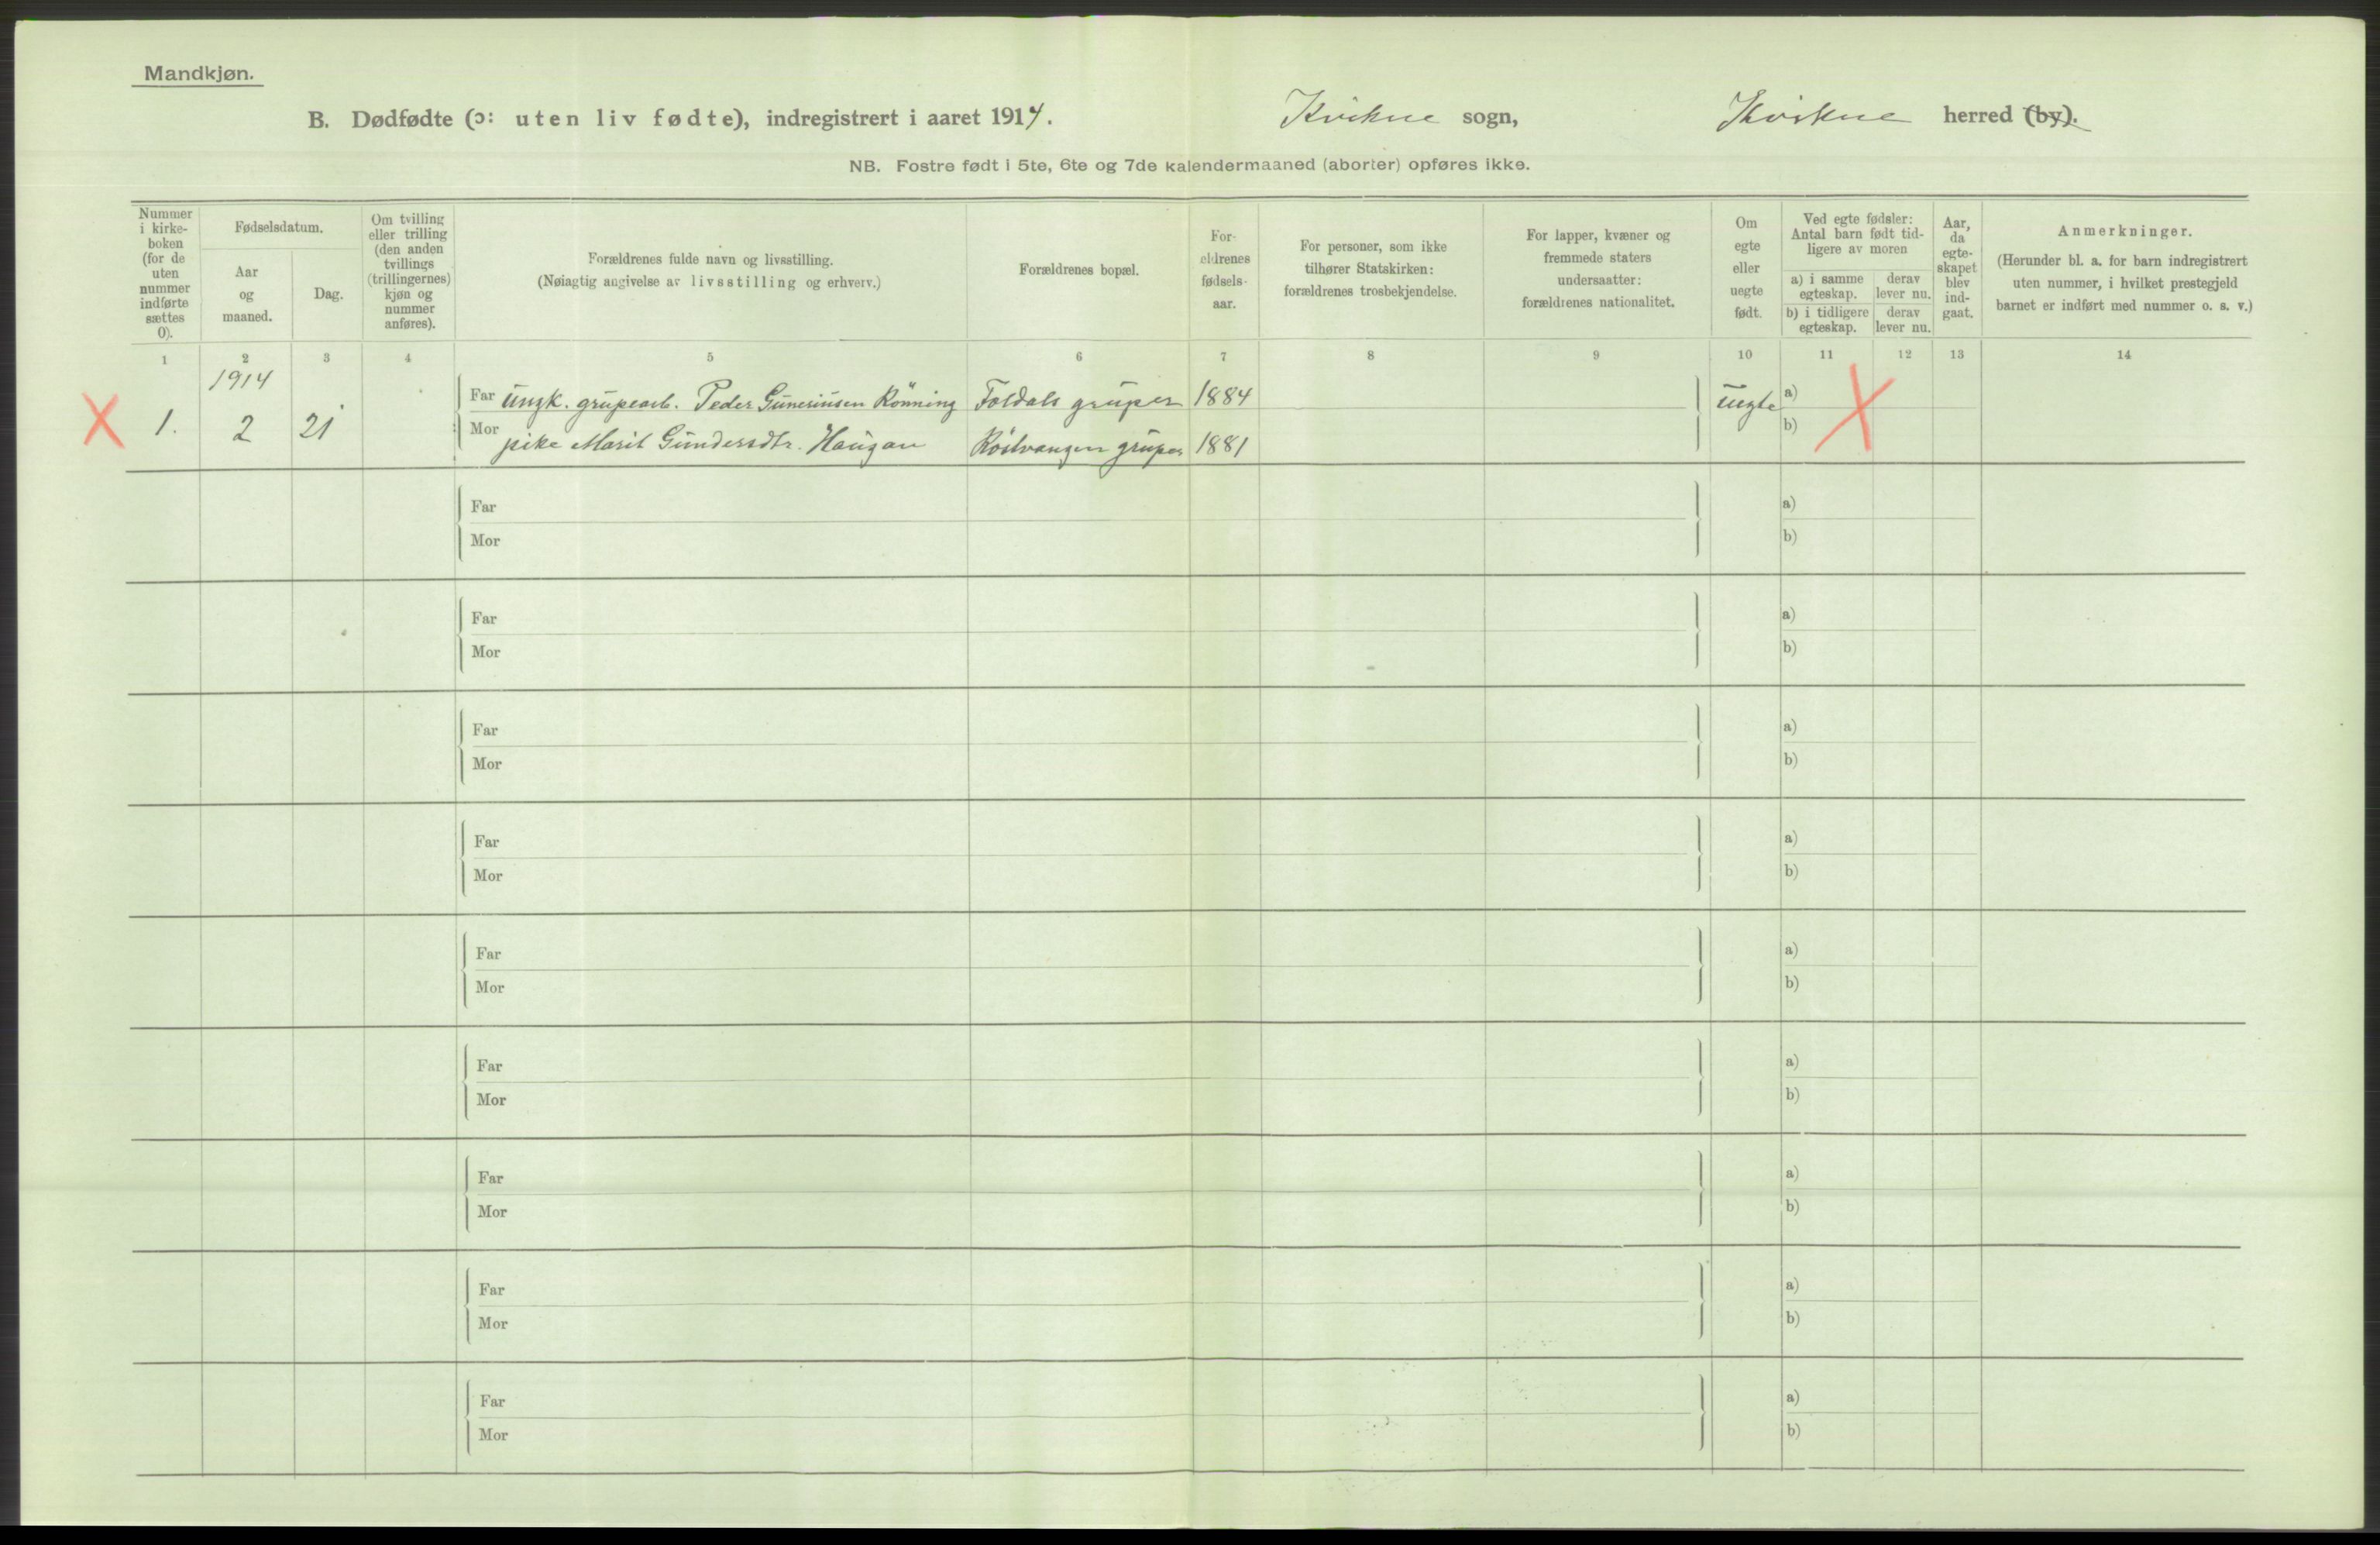 Mandkjøn.
B. Dødfødte (ɔ: uten liv fødte), indregistrert i aaret 1914. Kvikne sogn, Kvikne herred (by).
NB. Fostre født i 5te, 6te og 7de kalendermaaned (aborter) opføres ikke.
Nummer
i kirke-
boken
(for de
uten
nummer
indførte
sættes
0).
Fødselsdatum.
Aar
og
maaned.
Dag.
Om tvilling
eller trilling
(den anden
tvillings
(trillingernes)
kjøn og
nummer
anføres).
Forældrenes fulde navn og livsstilling.
(Nøiagtig angivelse av livsstilling og erhverv.)
Forældrenes bopæl.
For-
ældrenes
fødsels-
aar.
For personer, som ikke
tilhører Statskirken:
forældrenes trosbekjendelse.
For lapper, kvæner og
fremmede staters
undersaatter:
forældrenes nationalitet.
Om
egte
eller
uegte
født.
Ved egte fødsler:
Antal barn født tid-
ligere av moren
a) i samme
egteskap.
derav
lever nu.
b) i tidligere
egteskap.
derav
lever nu.
Aar,
da
egte-
skapet
blev
ind-
gaat.
Anmerkninger.
(Herunder bl. a. for barn indregistrert
uten nummer, i hvilket prestegjeld
barnet er indført med nummer o. s. v.)
1 2 3 4 5 6 7 8 9 10 11 12 13 14
1914
Far ungk. grupearb. Peder Guneriusen Rönning Foldals gruper 1884 uegte a)
1. 2 21
Mor pike Marit Gundersdtr. Haugan Röstvangen gruper 1881 b)
Far a)
Mor b)
Far a)
Mor b)
Far a)
Mor b)
Far a)
Mor b)
Far a)
Mor b)
Far a)
Mor b)
Far a)
Mor b)
Far a)
Mor b)
Far a)
Mor b)